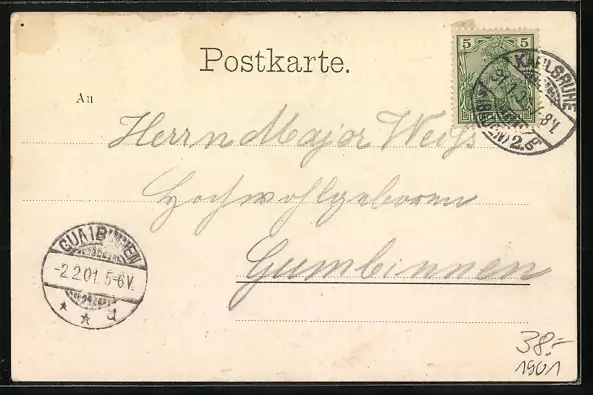 Postkarte.
5 5
KARLSRUHE
(BADEN) 2.
An
Herrn Major Weiß
Hochwohlgeboren
Gumbinnen
GUMBINNEN
-2.2.01. 5-6V.
* * a
38.-
1901